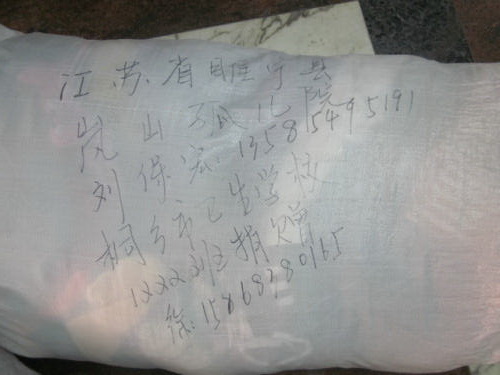 江苏省睢宁县
岚山孤儿院
刘保宏:13585495191
桐乡市卫生学校
1XXX班捐赠
徐:15868380165